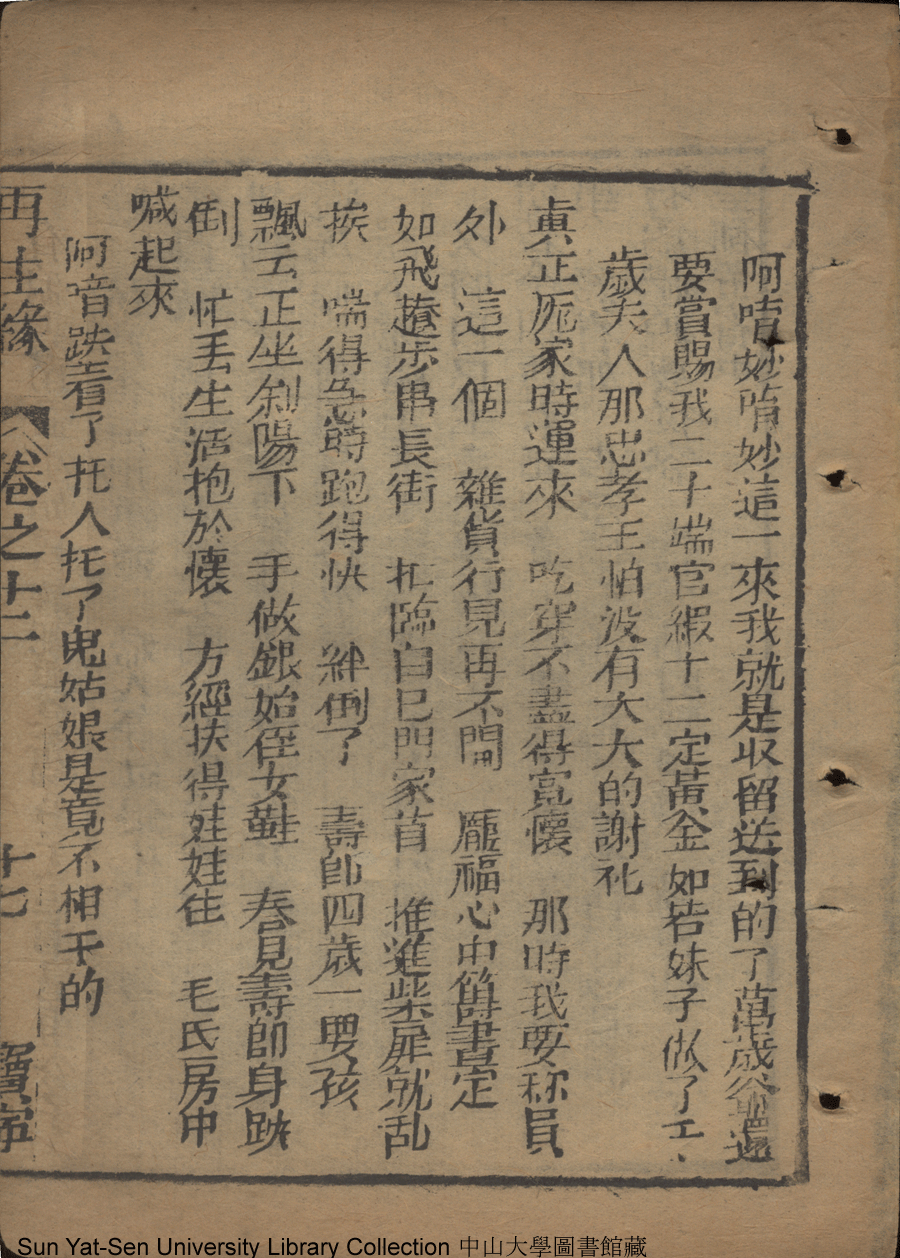 阿唷妙唷妙這一來我就是収留送到的了萬歲爺還
要賞賜我二十端官緞十二定黃金如若妹子做了千
歲夫人那忠孝王怕没有大大的謝礼
真正厖家時運來 吃穿不盡得寬懷 那時我要称員
外 這一個 雜貨行見再不開 龐福心中籌畫定
如飛趱步串長街 忙臨自已門家首 推進柴扉就乱
挨 喘得急時跑得快 絆倒了 壽郎四歲一嬰孩
飄云正坐斜陽下 手做銀始侄女鞋 春見壽郎身跌
倒 忙丟生活抱於懷 方經扶得娃娃住 毛氏房中
喊起來
阿唷跌着了托人托了鬼姑娘是竟不相干的
再生緣 卷之十二 十七 寶寧
Sun Yat-Sen University Library Collection 中山大學圖書館藏